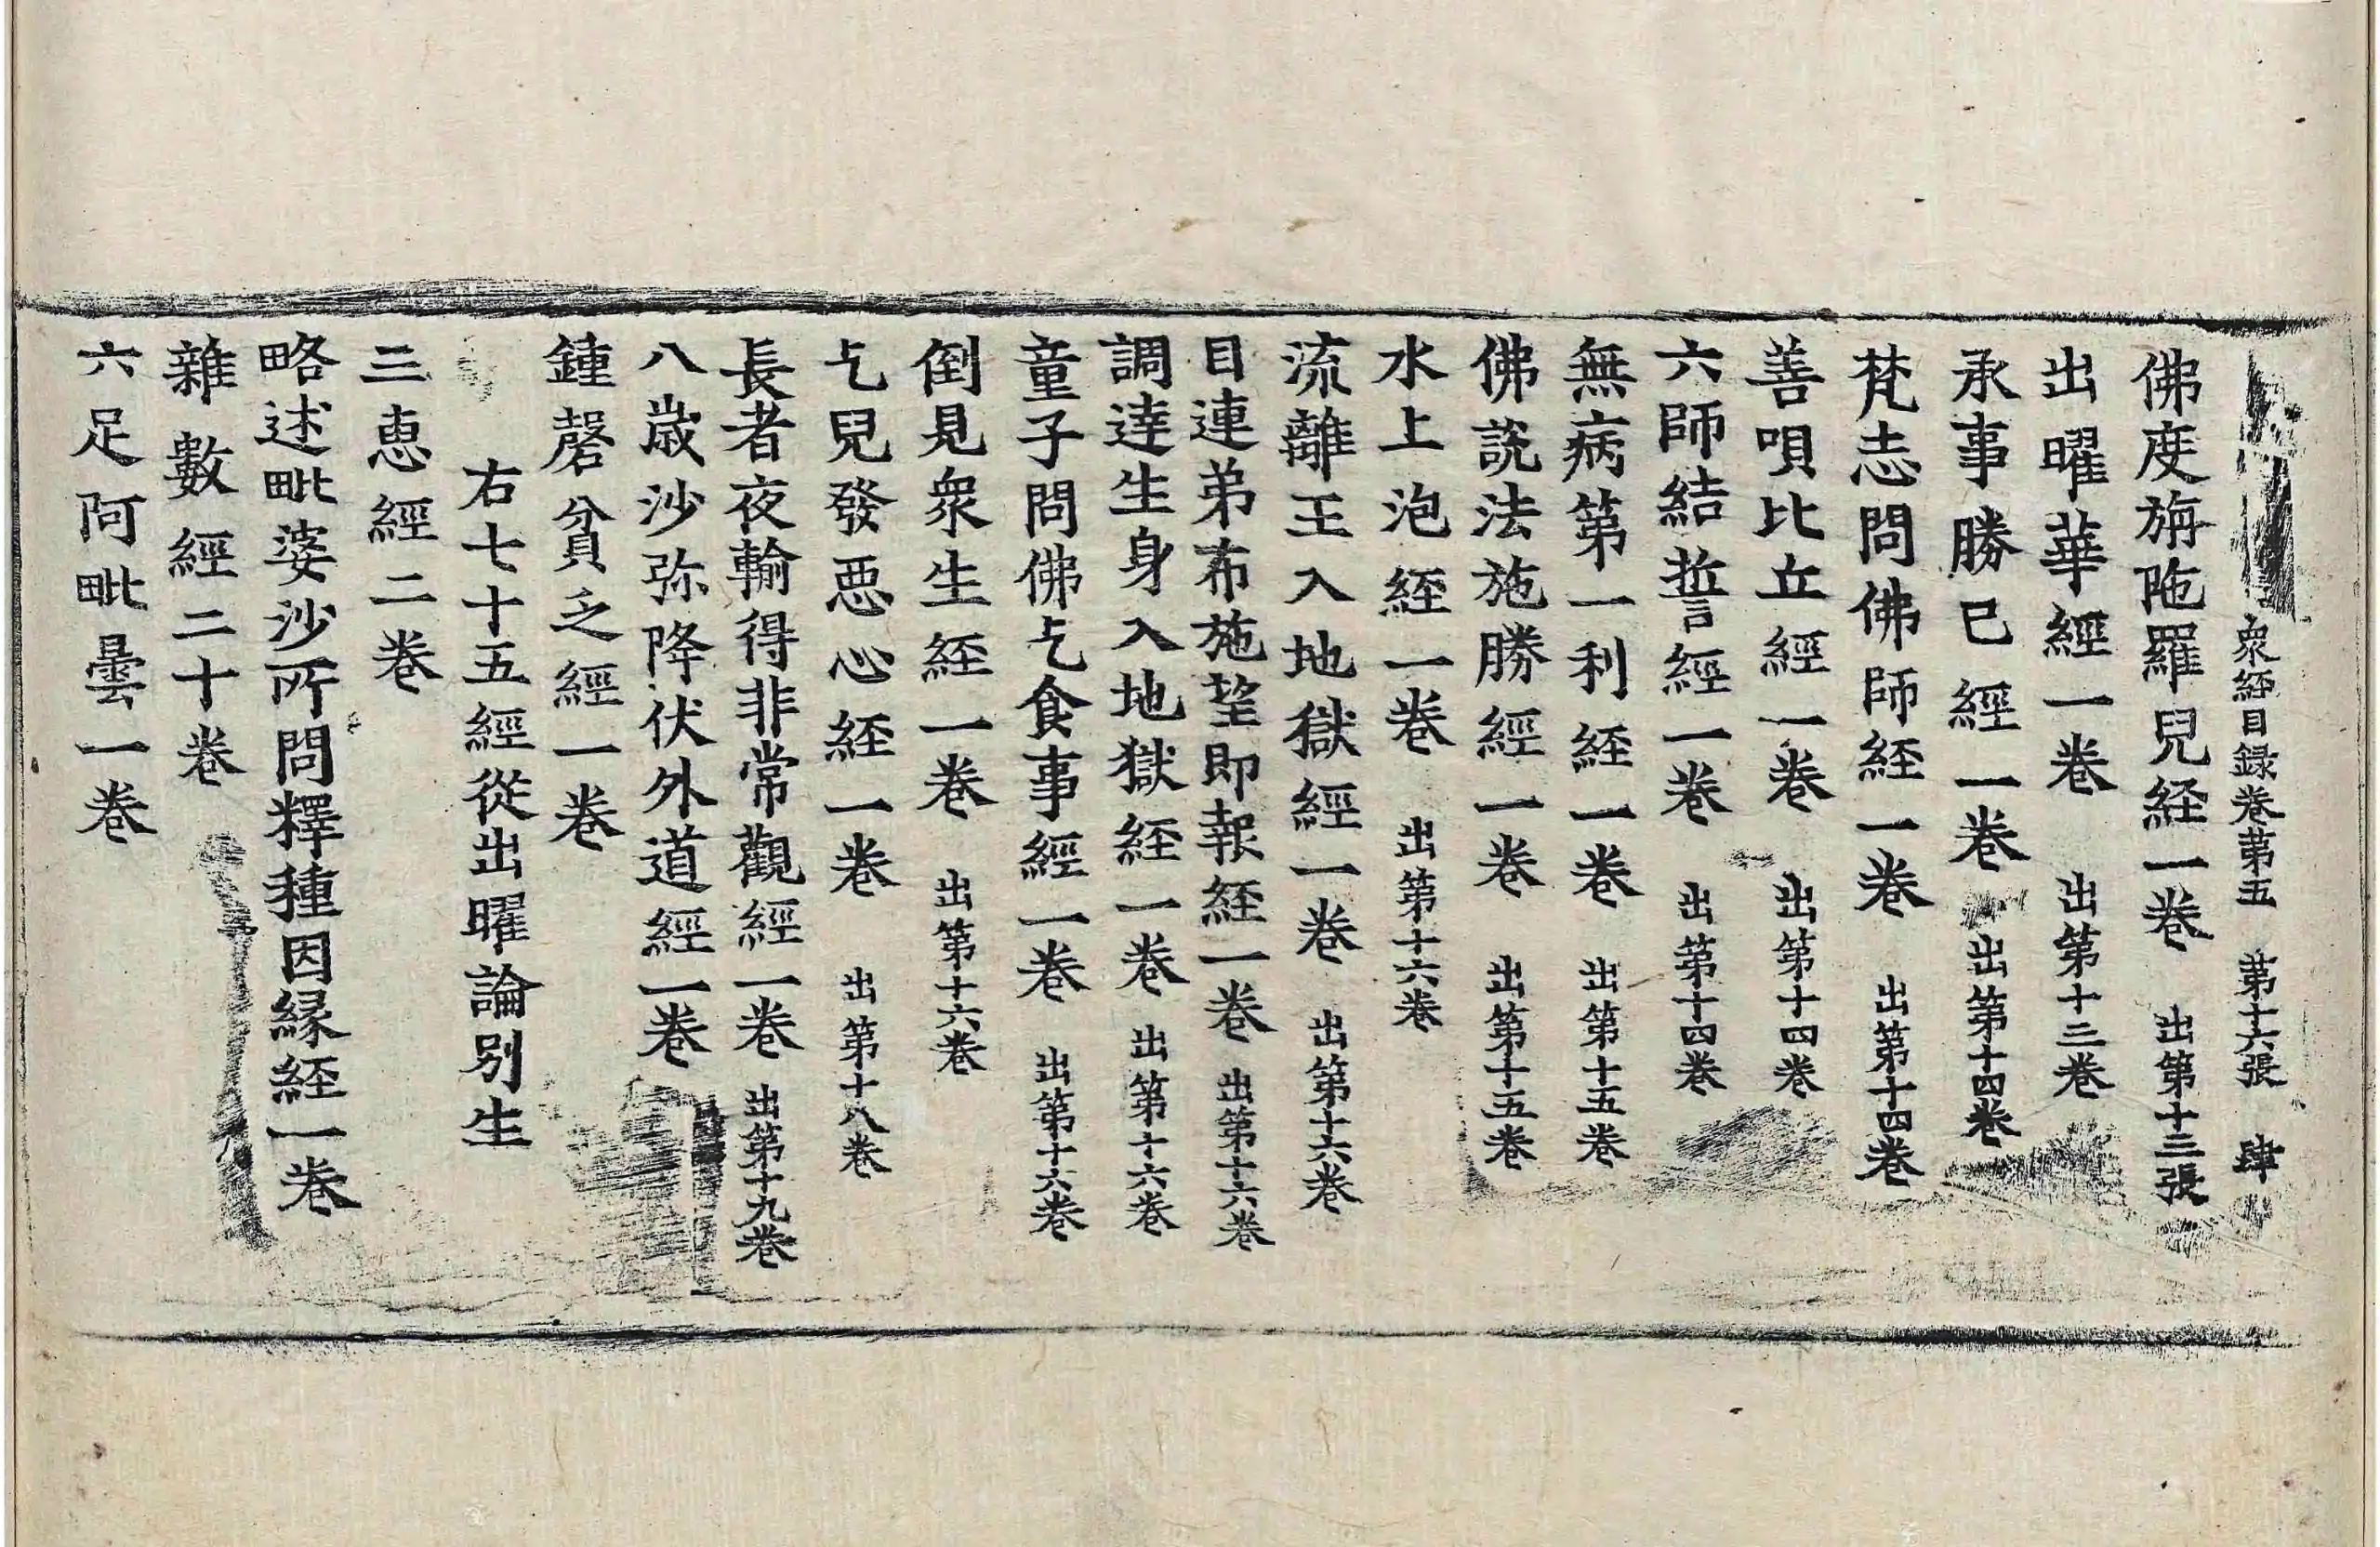 衆経目録卷苐五 苐十六張 肆
佛度旃陁羅兒経一卷 出第十三張
出曜華經一卷 出第十三卷
承事勝已經一卷 出第十四卷
梵志問佛師経一卷 出第十四卷
善唄比丘經一卷 出第十四卷
六師結誓經一卷 出第十四卷
無病第一利経一卷 出第十五卷
佛説法施勝經一卷 出第十五卷
水上泡経一卷 出第十六卷
流離王入地獄經一卷 出第十六卷
目連弟布施望即報経一卷 出第十六卷
調達生身入地獄経一卷 出第十六卷
童子問佛乞食事經一卷 出第十六卷
倒見衆生経一卷 出第十六卷
乞兒發惡心経一卷 出第十八卷
長者夜輸得非常觀經一卷 出第十九卷
八歳沙弥降伏外道經一卷
鍾磬貧乏經一卷
右七十五經從出曜論別生
三恵經二卷
略述毗婆沙所問釋種因縁経一卷
雜數經二十卷
六足阿毗曇一卷